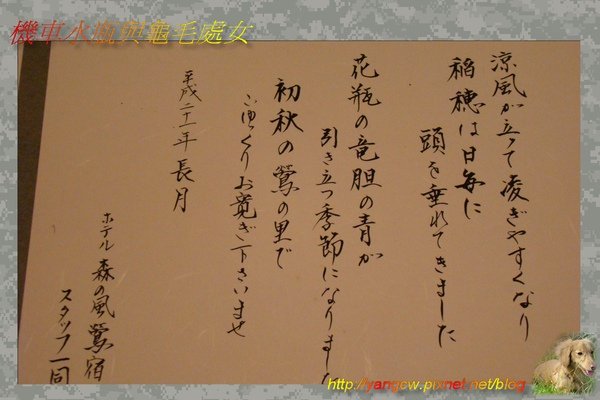 機車水瓶與龜毛處女
涼風が立って凌ぎやすくなり
稲穂は日毎に
頭を垂れてきました
花瓶の竜胆の青が
引き立つ季節になりまし
初秋の鶯の里で
ごゆっくりお寛ぎ下さいませ
平成二十一年長月
ホテル森の風鶯宿
スタッフ一同
http://yangcw.pixnet.net/blog